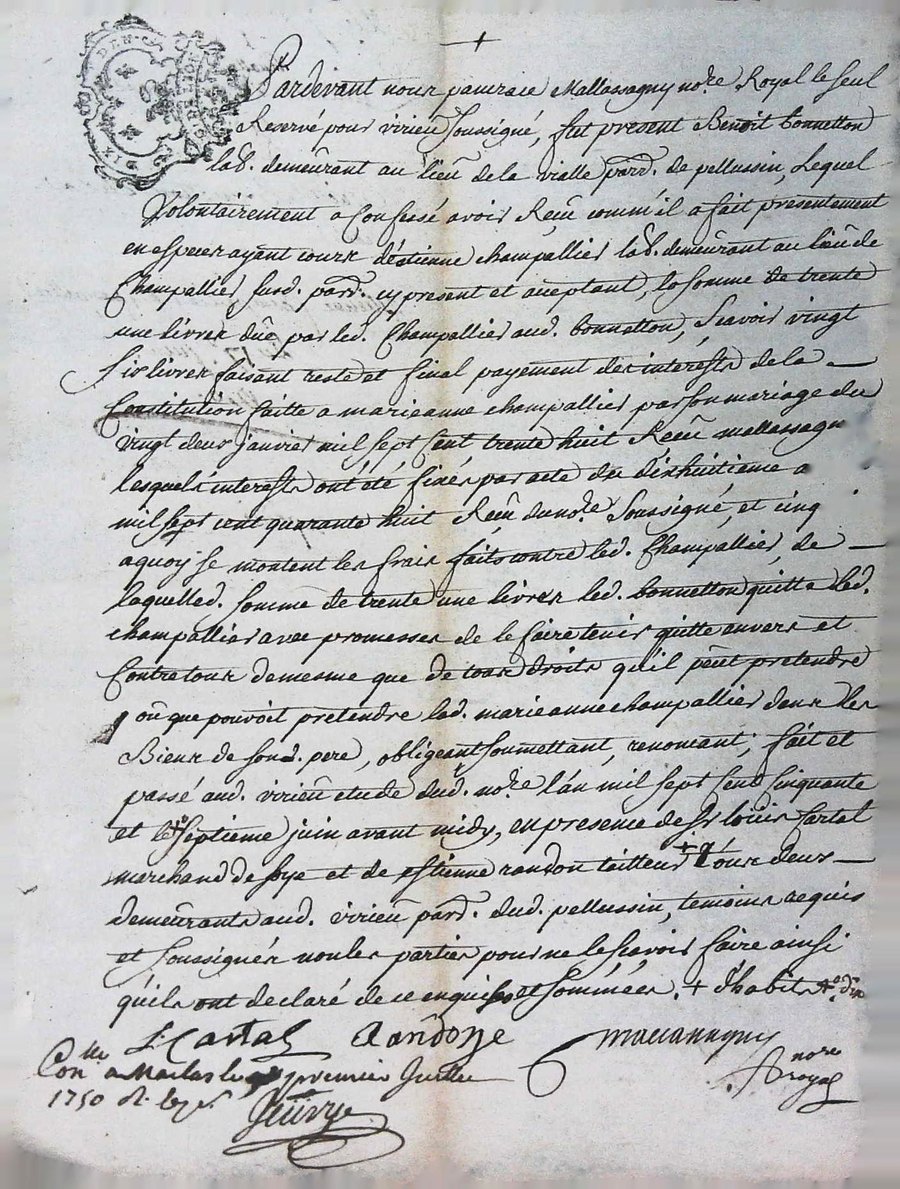 +
Pardevant nous pancrace Mallassagny no.re Royal le seul
Reservé pour virieu soussigné, fut present Benoit bonnetton
lab. demeûrant au lieû de la vialle parr. de pellussin, Lequel
Volontairement a confessé avoir Reçû comm'il a fait presentement
en especes ayant cours d'etienne champallier lab. demeûrant au lieû de
Champallier susd. parr. cy present et aceptant, la somme de trente
une livres düe par led. Champallier aud. bonnetton, sçavoir vingt
six livres faisant reste et final payement des interests de la
Constitution faitte a marieanne champallier par son mariage du
vingt deux janvier mil sept cent trente huit Reçû mallassagn
lesquels interests ont été fixés par acte du dixhuitieme a
mil sept cent quarante huit Reçû du no.re soussigné, et cinq
a quoy se montent les frais faits contre led. Champallier, de
laquelled. somme de trente une livres led. bonnetton quitte led.
champallier avec promesses de le faire tenir quitte envers et
Contre tous de mesme que de tous droits qu'il peût pretendre
oû que pouvoit pretendre lad. marieanne champallier dans les
Biens de sond. pere, obligeant, soumettant, renonçant, fait et
passé aud. virieû etude dud. no.re l'an mil sept cent cinquante
et le septieme juin avant midy, en presence de Sr louis Cartal
marchand de soye et de estienne randon tailleur + tous deux
demeûrants aud. virieû parr. dud. pellussin, temoins requis
et soussignés non les parties pour ne le sçavoir faire ainsi
qu'ils ont declaré de ce enquises et sommées. + d'habits
L. Cartal Randon Mallassagny
no.re
royal
Con.lle a Maclas le premier Juillet
1750